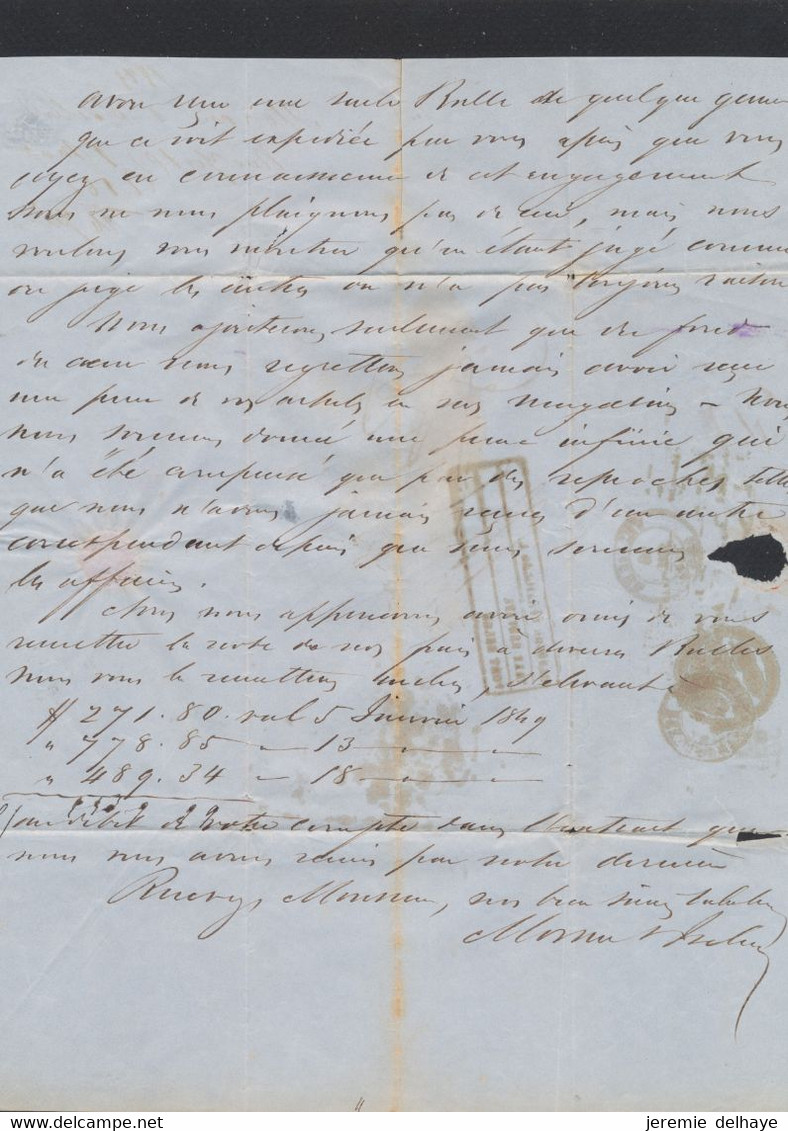 avoir reçu une seule Balle de quelque genre
que ce soit expediée par vous après que vous
ayez eu connaissance de cet engagement
nous ne nous plaignons pas de ceci, mais nous
voulons vous montrer qu'en étant jugé comme
on juge les autres on n'a pas toujours raison
Nous ajouterons seulement que du fond
du cœur nous regrettons jamais avoir reçu
une pièce de vos articles en nos magasins – Nous
nous sommes donné une peine infinie qui
n'a été compensé que par des reproches telles
que nous n'avons jamais reçues d'un autre
correspondant depuis que nous sommes
les affaires.
nous apprenons avoir omis de vous
remettre la note de nos frais à diverses Balles
Nous vous la remettons inclus, s'élevant à
$ 271.80. val 5 Janvier 1849
" 778.85 – 13 – "
" 489.34 – 18 – "
au débit de votre compte dans l'Extrait que
nous vous avons remis par notre dernière
Recevez, Monsieur, nos bien
delcampe.net
jeremie delhaye